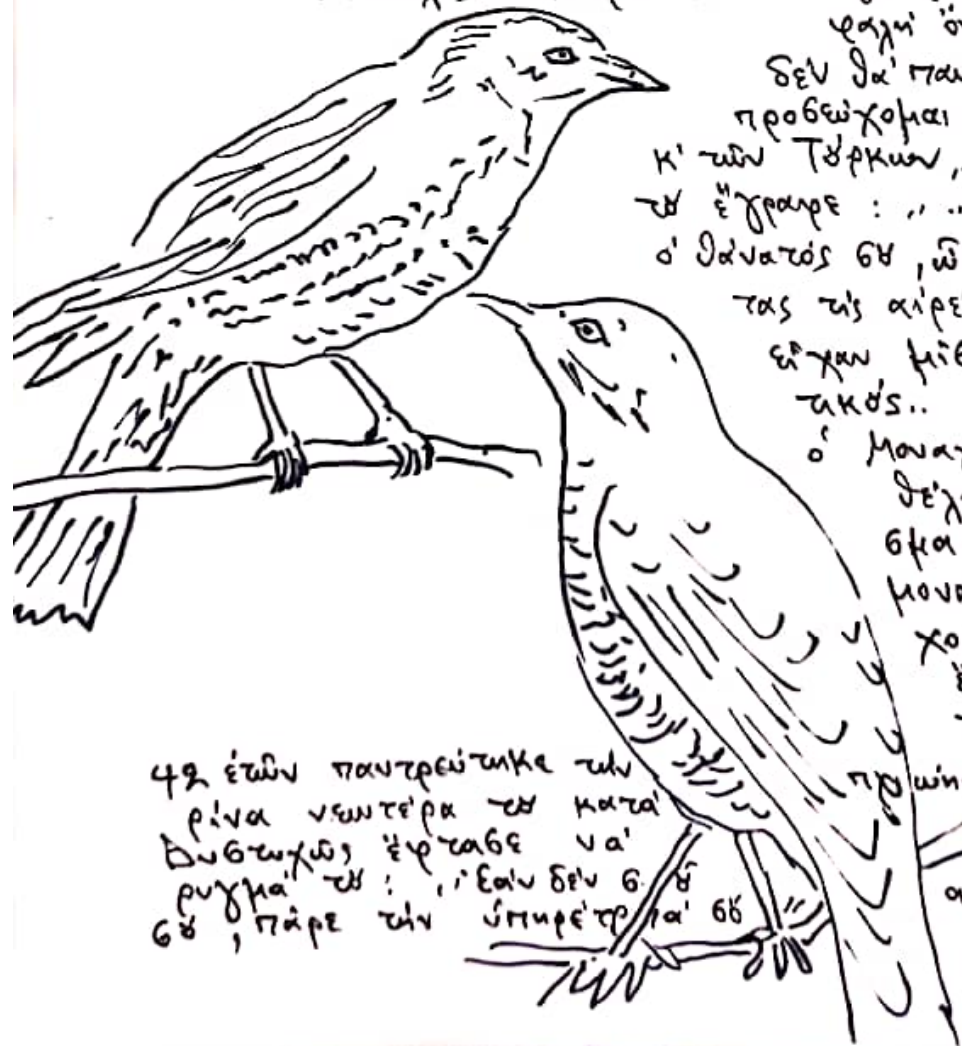 δέν θά παυ
προσεύχομαι
κ' τῶν Τȣ́ρκων ,
τȣ ἔγραψε : ,,
ὁ θάνατός σȣ , ὦ
τας τίς αἱρέ
εἶχαν
τικȣ́ς..
ὁ μονα
θέλ
σμα
μονα
χο
42 ἐτῶν παντρεύτηκε τήν
ρίνα νεωτέρα τȣ κατά
Δυστυχῶς ἔφτασε νά
ρυγμά τȣ : ,, ἐάν δέν
σȣ , πάρε τήν ὑπηρέτρια σȣ